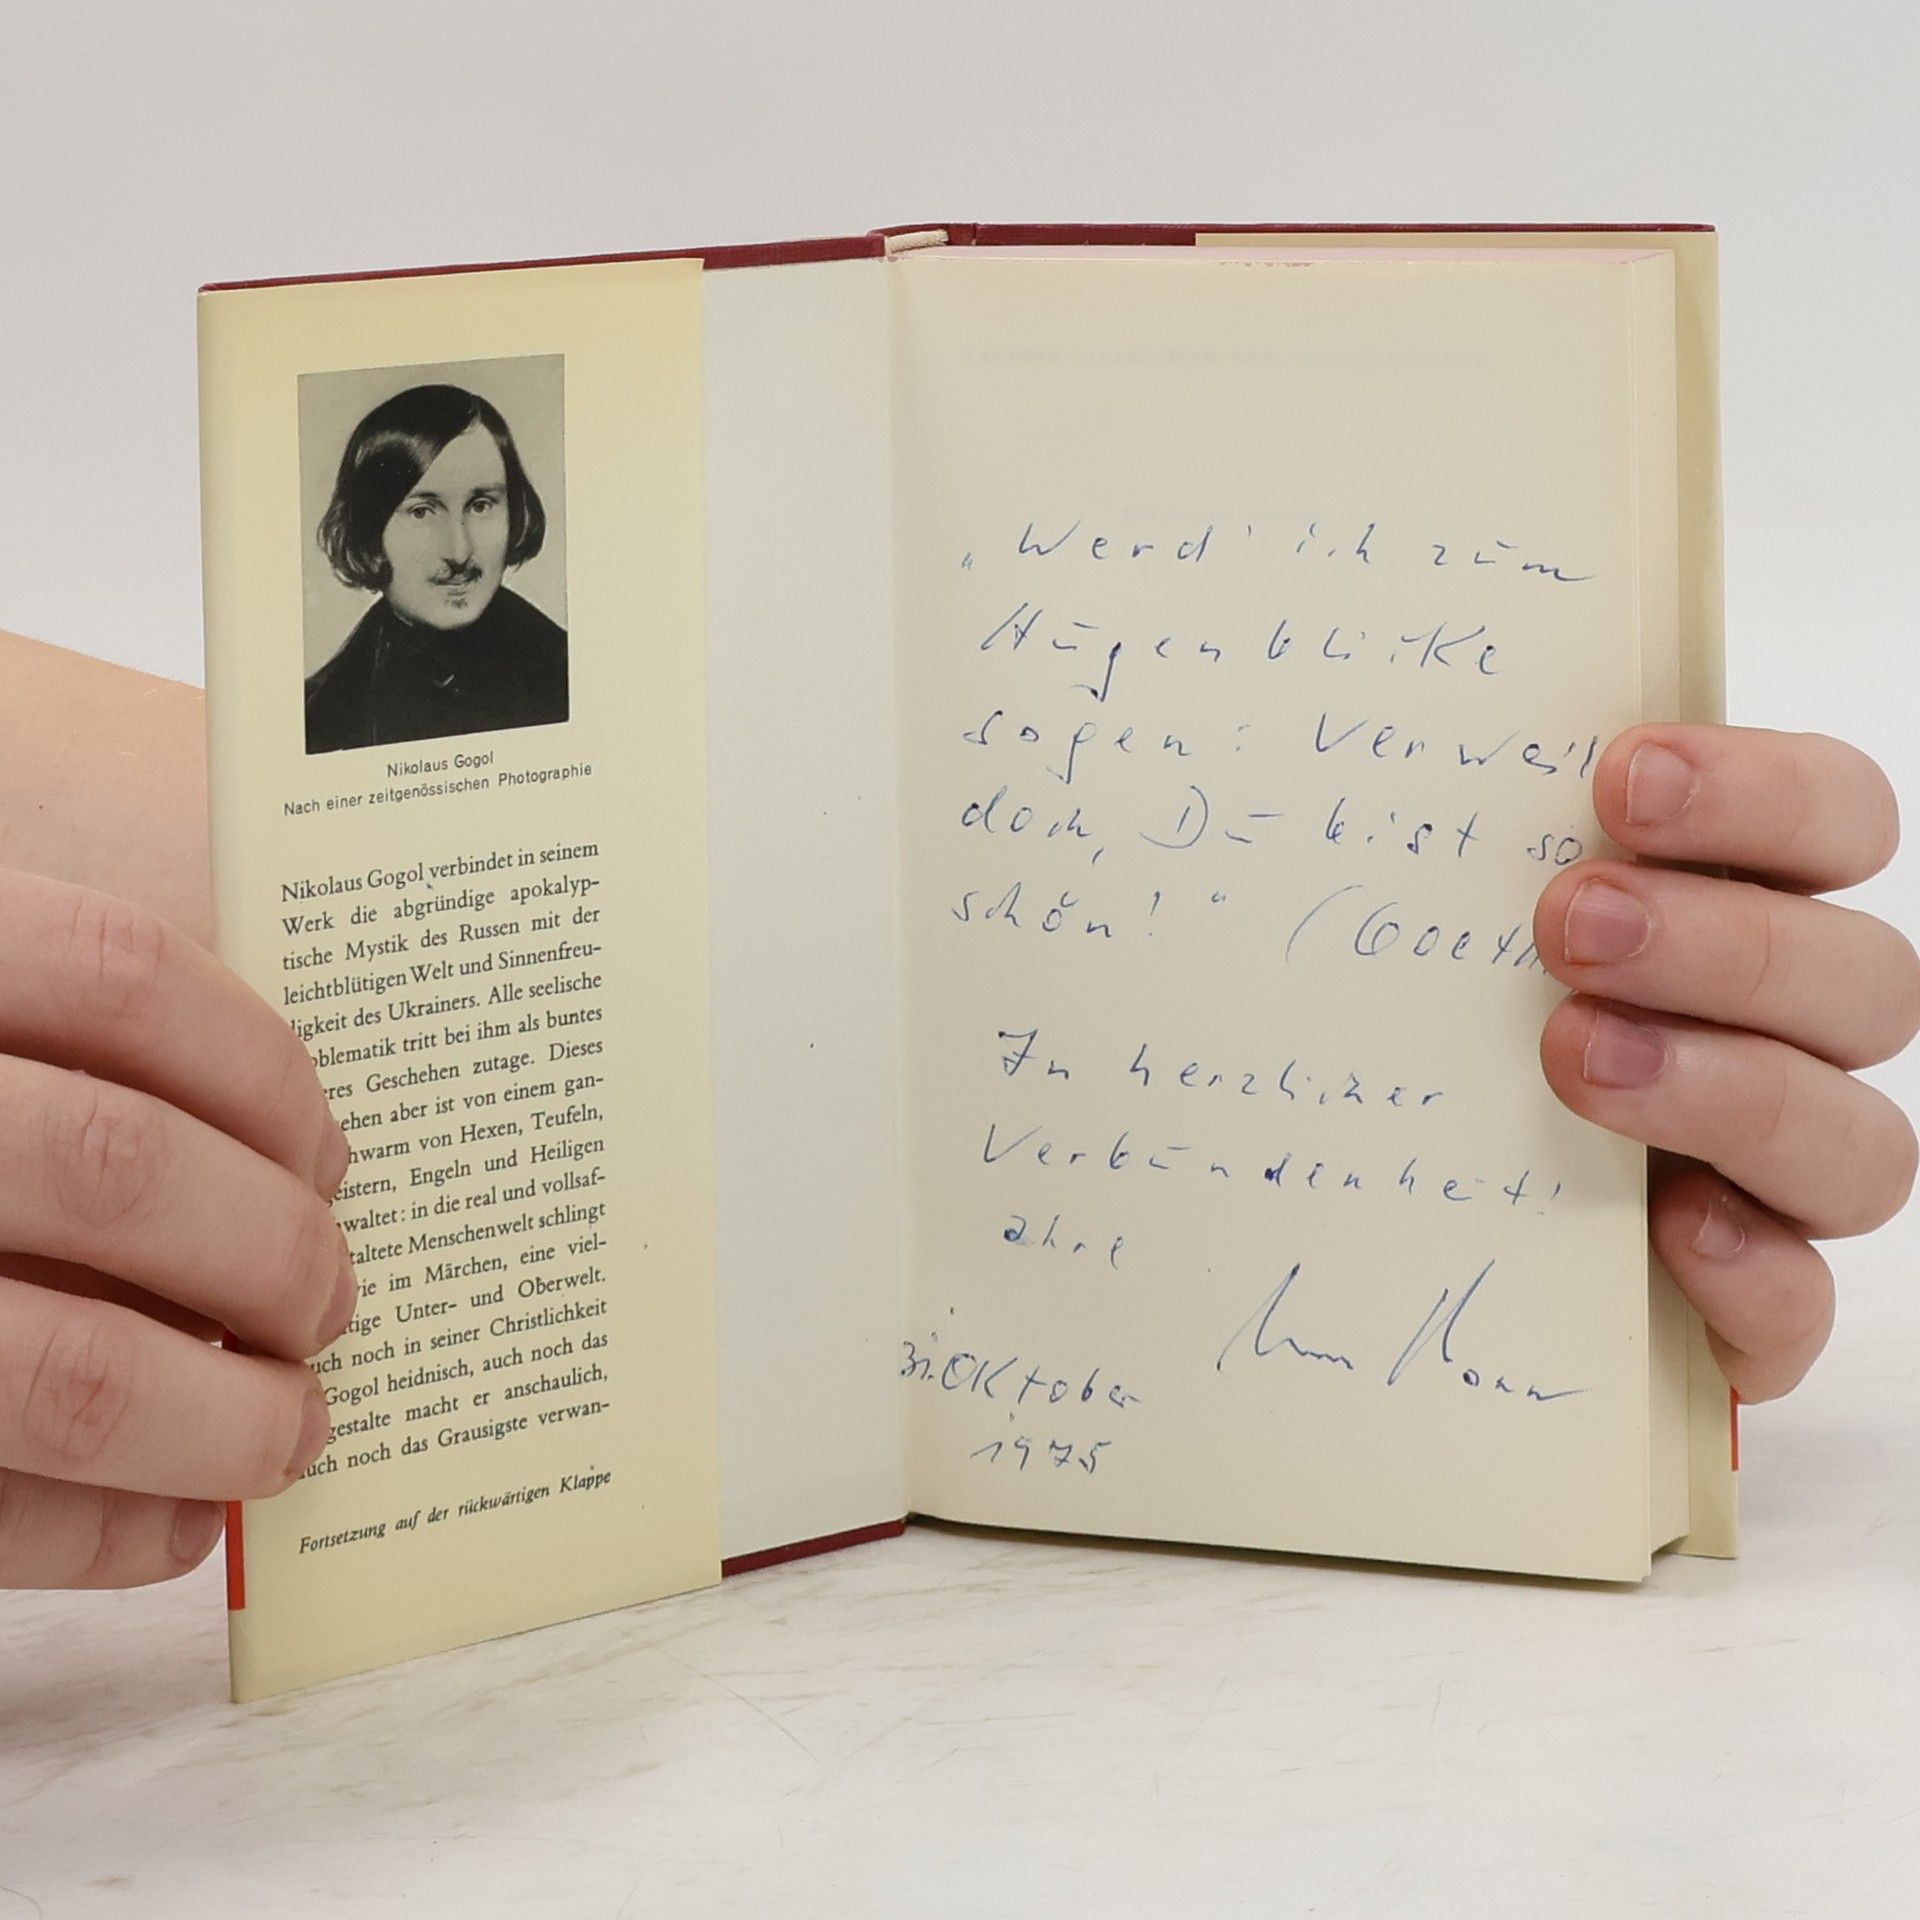 Nikolaus Gogol
Nach einer zeitgenössischen Photographie
Nikolaus Gogol verbindet in seinem
Werk die abgründige apokalyp-
tische Mystik des Russen mit der
leichtblütigen Welt und Sinnenfreu-
ligkeit des Ukrainers. Alle seelische
oblematik tritt bei ihm als buntes
eres Geschehen zutage. Dieses
ehen aber ist von einem gan-
hwarm von Hexen, Teufeln,
eistern, Engeln und Heiligen
waltet: in die real und vollsaf-
taltete Menschenwelt schlingt
ie im Märchen, eine viel-
tige Unter- und Oberwelt.
uch noch in seiner Christlichkeit
Gogol heidnisch, auch noch das
gestalte macht er anschaulich,
uch noch das Grausigste verwan-
Fortsetzung auf der rückwärtigen Klappe
„Werd' ich zum
Augenblicke
sagen: Verweil
doch, Du bist so
schön!" (Goeth
In herzlicher
Verbundenheit!
31. Oktober
1975